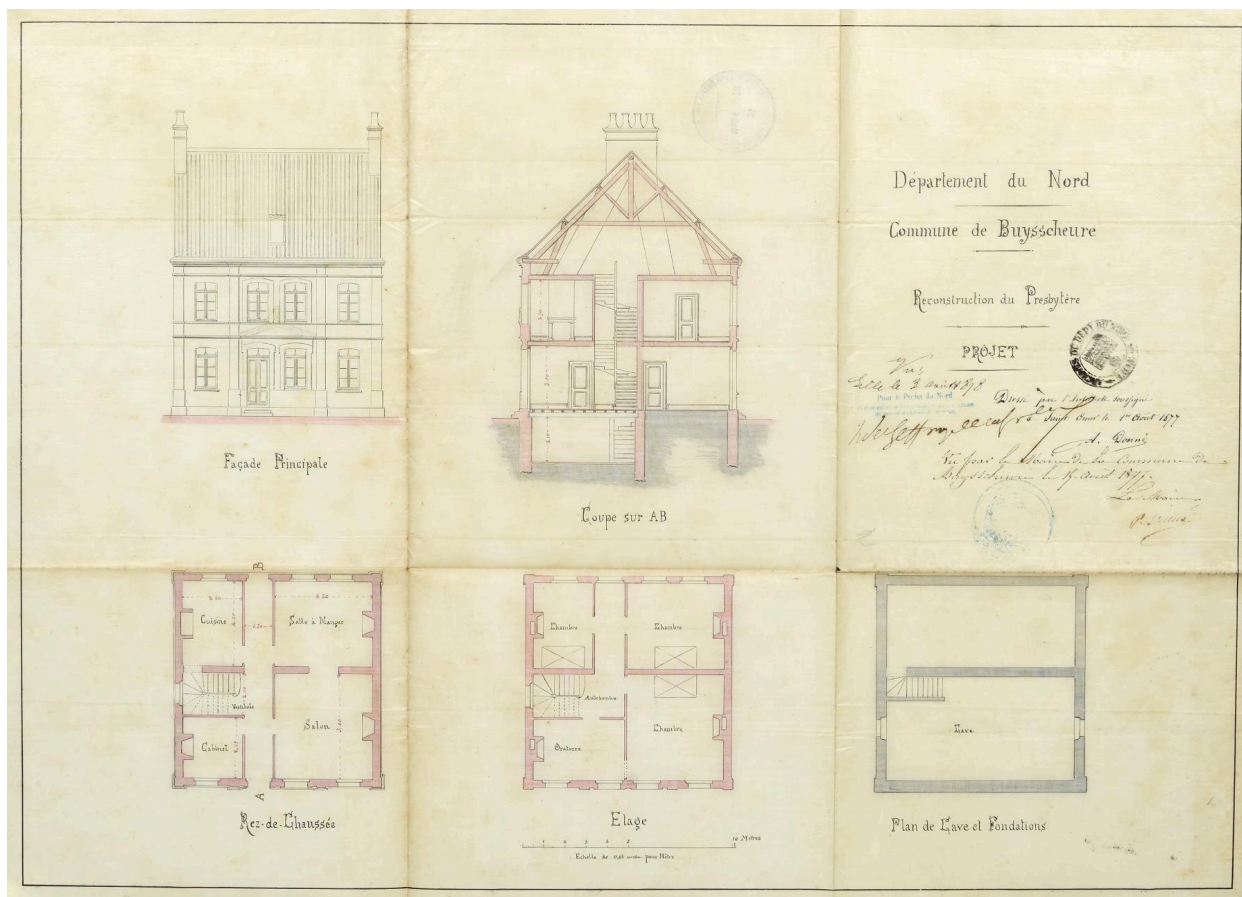 Département du Nord
Commune de Buysscheure
Reconstruction du Presbytère
PROJET
Vu:
Lille le 3 Août 1878
Pour le Préfet du Nord
Dressé par l'Architecte soussigné
Saint Omer le 1er Août 1877
Vu par le Maire de la Commune de
Buysscheure le 17 Août 1877.
Le Maire
Façade Principale
Coupe sur AB
B
Cuisine
Salle à Manger
Vestibule
Salon
Cabinet
A
Rez-de-Chaussée
Chambre
Chambre
Antichambre
Oratoire
Chambre
Etage
10 Mètres
pour Mètre
Cave
Plan de Cave et Fondations